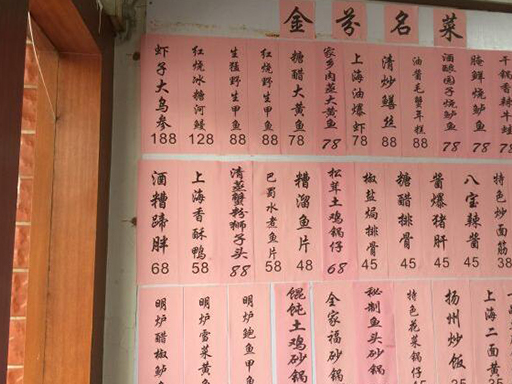 金芬名菜
虾子大乌参 188
红烧冰糖河鳗 128
生猛野生甲鱼 88
红烧野生甲鱼 88
糖醋大黄鱼 78
家乡肉蒸大黄鱼 78
上海油爆虾 78
清炒鳝丝 88
油酱毛蟹年糕 88
酒酿圆子烧鲈鱼 78
腌鲜烧鲈鱼 78
干锅香辣牛蛙 78
酒糟蹄胖 68
上海香酥鸭 58
清蒸蟹粉狮子头 88
巴蜀水煮鱼片 58
糟溜鱼片 48
松茸土鸡锅仔 68
椒盐焗排骨 45
糖醋排骨 45
酱爆猪肝 45
八宝辣酱 45
特色炒面筋 38
明炉醋椒鲈
明炉雪菜黄鱼
明炉鲍鱼甲鱼
馄饨土鸡砂锅
全家福砂锅
秘制鱼头砂锅
特色花菜锅仔
扬州炒饭
上海二面黄